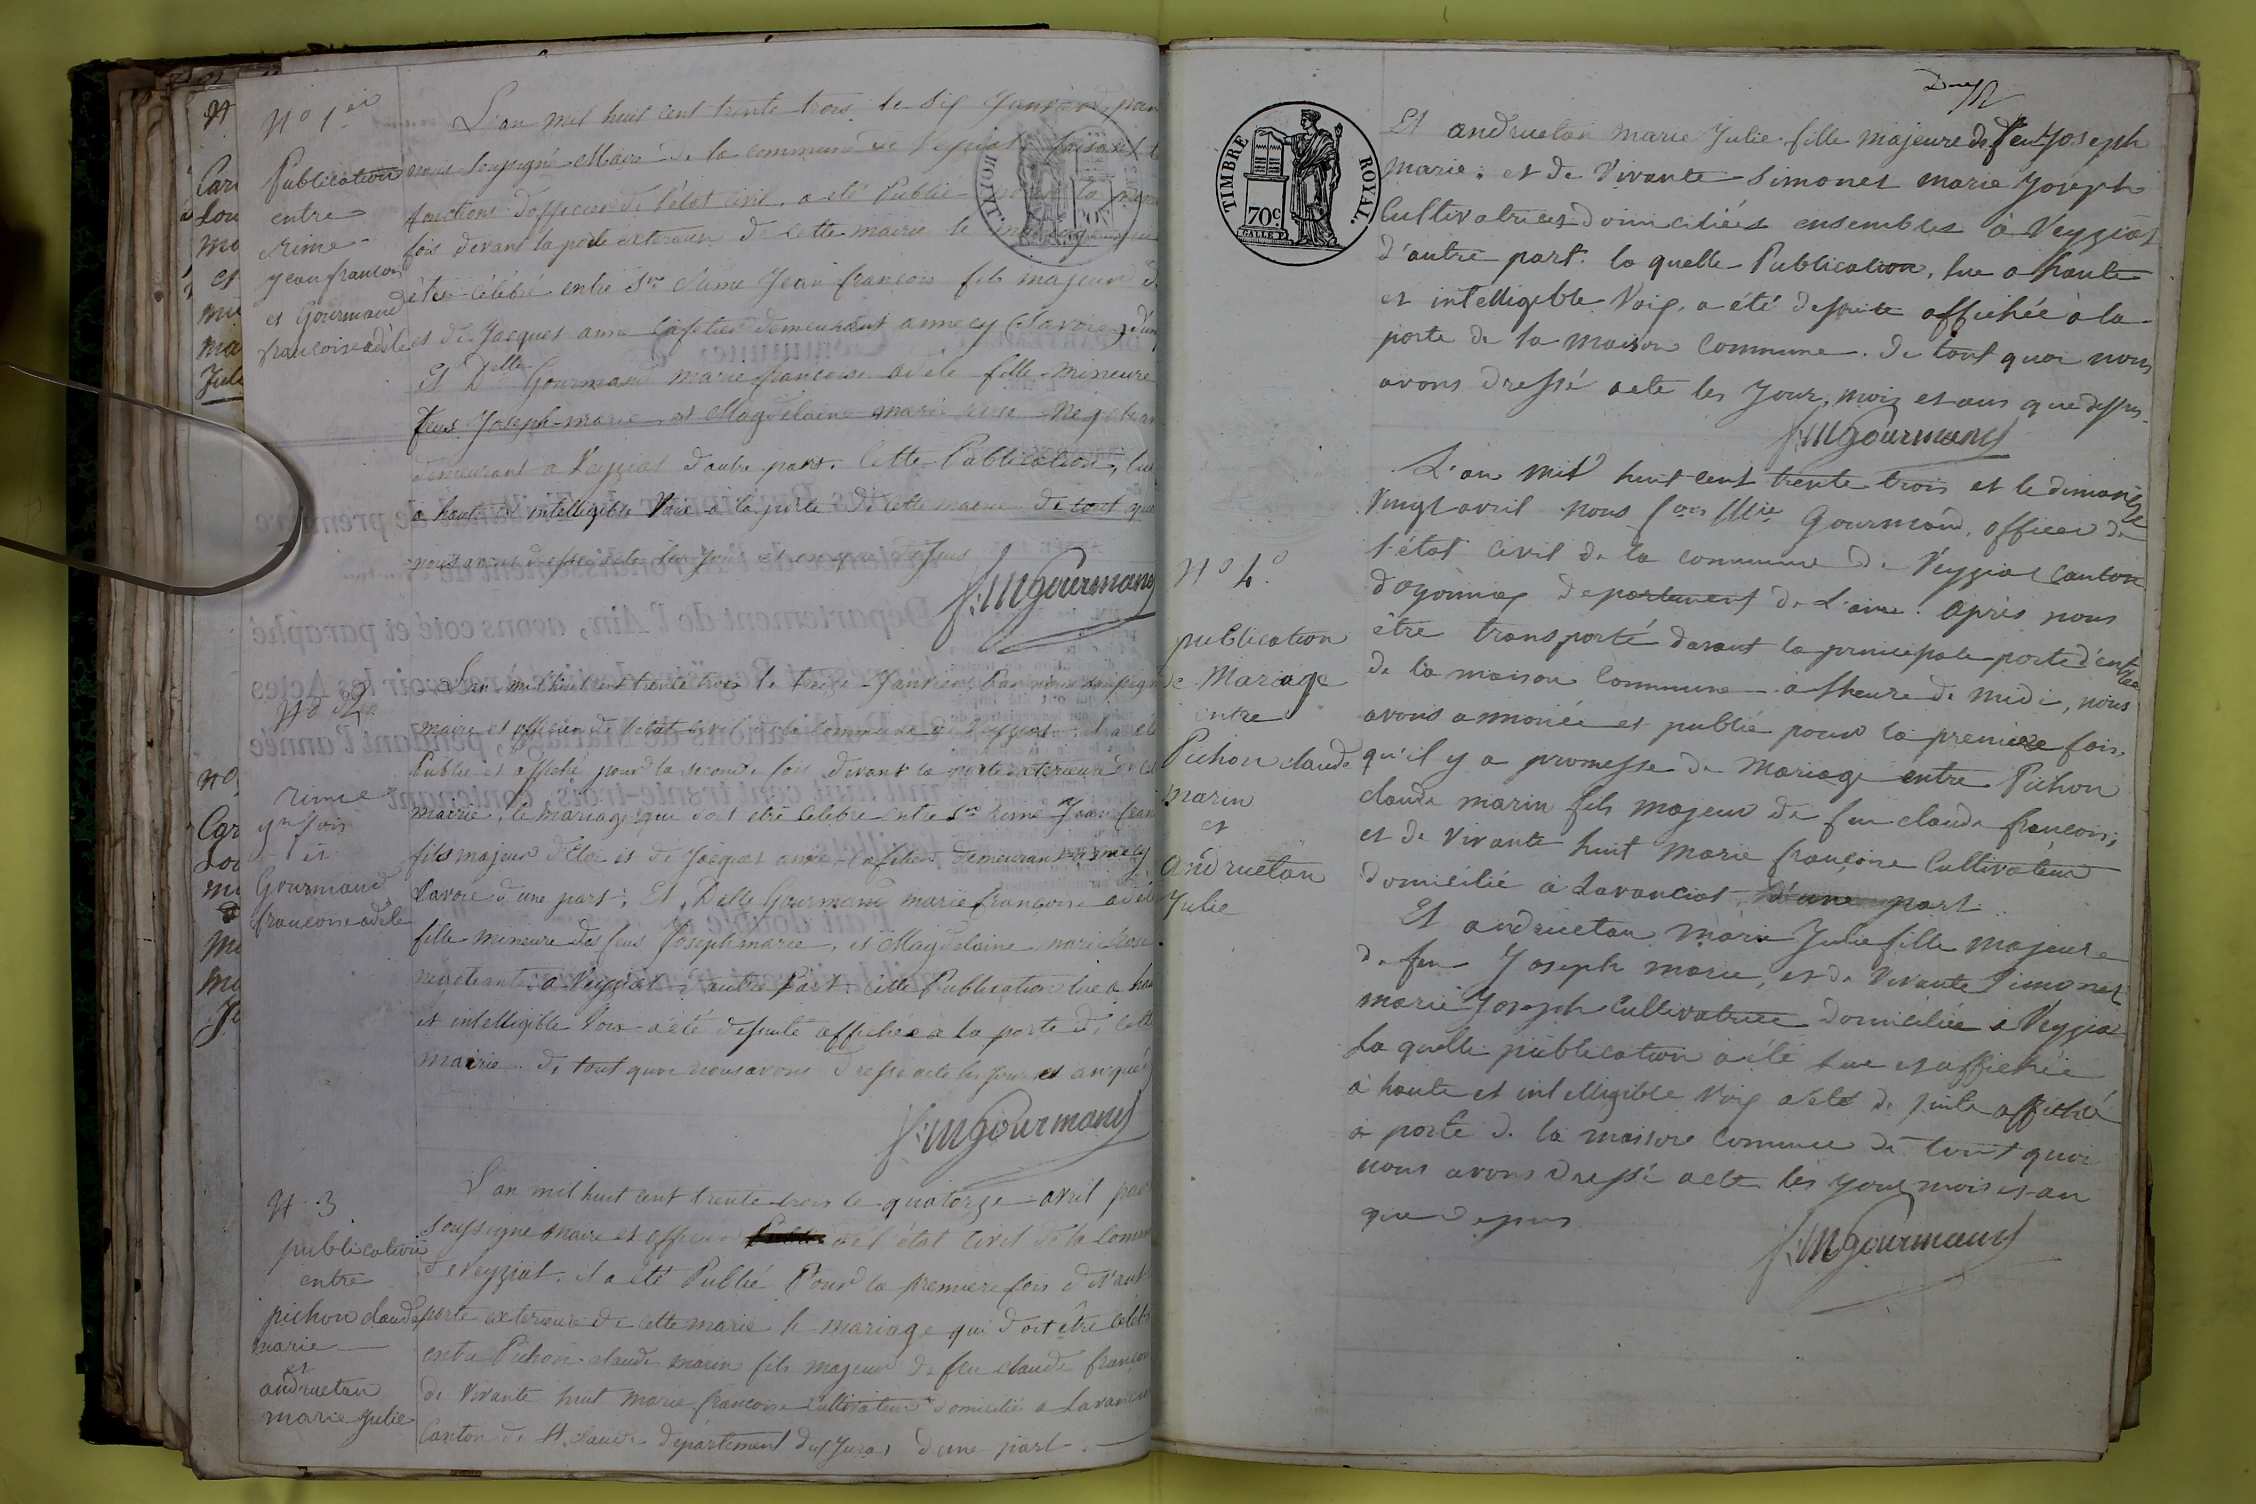 N° 1er
Publication
entre
rime
jean francois
et Gourmand
francoise adèle
L'an mil huit cent trente trois le six Janvier par
nous soussigné Maire de la commune de Veyziat faisant
fonctions d'officier de l'état civil, a été Publié pour la
fois devant la porte exterieur de cette mairie le mariage
être célébré entre Sr Rime Jean francois fils majeur d
et de Jacquet anne Cafetier demeurant annecy (Savoie) d'un
Et Delle Gourmand marie francoise adèle fille mineure
feus Joseph-marie et Magdelaine marie
demeurant a Veyziat d'autre part. Cette Publication, lue
à haute et intelligible Voix à la porte de cette mairie De tout quoi
nous avons dressé acte les jour et an que dessus
f: M Gourmand
N° 2
rime
jn fois
et
Gourmand
francoise adèle
L'an mil huit cent trente trois le treize Janvier Par nous soussigné
maire et officier de l'etat civil de la commune de Veyziat il a été
Publié et affiché pour la seconde fois devant la porte exterieure de
mairie, le mariage que doit etre celebré entre Sr Rime Jean fran
fils majeur d'Eloi et de Jacquet anne cafetier demeurant annecy
Savoie d'une part; Et Delle Gourmand marie francoise adèle
fille mineure des feus Joseph marie, et Magdelaine marie
negotiante a Veyziat d'autre Part. Cette Publication lue a hau
et intelligible Voix a été desuite affichée à la porte de cette
mairie de tout quoi nous avons dressé acte les jour et an que d
f: M Gourmand
N° 3
publication
entre
pichon claude
marie
et
andruetan
marie Julie
L'an mil huit cent trente trois le quatorze avril par
soussigné Maire et officier de l'état civil de la commu
de Veyziat. il a été Publié Pour la premiere fois devant
porte exterieure de cette marie le mariage qui doit être celebr
entre Pichon claude marin fils majeur de feu claude françois
de vivante huit marie françoise Cultivateur domicilié a Lavancia
Canton de St. Claude département du Jura, d'une part.
TIMBRE ROYAL.
70c
Et andruetan marie Julie fille majeure de feu Joseph
marie; et de Vivante Simonet marie Joseph
Cultivatrices domiciliées ensembles à Veyziat
d'autre part. la quelle Publication, lue a haute
et intelligible Voix, a été desuite affichée à la
porte de la maison Commune. de tout quoi nous
avons dressé acte les Jour, mois et ans que dessus.
f: M Gourmand
N° 4°
publication
de Mariage
entre
Pichon claude
marin
et
andruetan
Julie
L'an mil huit cent trente trois et le dimanche
Vingt avril nous fois Mie Gourmand, officier de
l'état Civil de la commune de Veyziat Canton
d'oyonnax departement de L'ain. après nous
être transporté davant la principale porte d'entrée
de la maison Commune à l'heure de midi, nous
avons annoncé et publié pour la premiere fois,
qu'il y a promesse de Mariage entre Pichon
claude marin fils majeur de feu claude francois,
et de Vivante huit Marie françoise Cultivateur
domicilié à Lavanciat, d'une part.
Et andruetan marie Julie fille majeure
de feu Joseph marie, et de Vivante Simonet
marie Joseph Cultivatrice domiciliée à Veyziat
La quelle publication a été lue et affichée
à haute et intelligible Voix a été de suite affiché
a porte de la maison Commune de tout quoi
nous avons dressé acte les jour mois et an
que dessus
f: M Gourmand